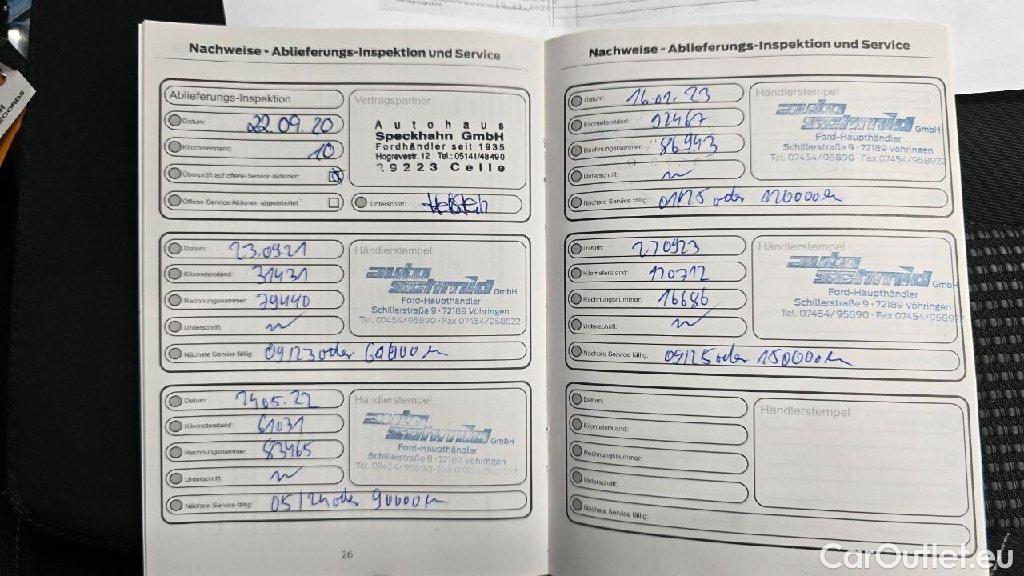 Nachweise - Ablieferungs-Inspektion und Service
Ablieferungs-Inspektion
Datum: 22.09.20
Kilometerstand: 10
Überprüft auf offene Service Aktionen:
Offene Service Aktionen abgearbeitet:
Vertragspartner
Autohaus
Speckhahn GmbH
Fordhändler seit 1935
Hogrevestr. 12 Tel.: 05141/48490
29223 Celle
Unterschrift:
Datum: 23.09.21
Kilometerstand: 31431
Rechnungsnummer: 79440
Unterschrift:
Nächste Service fällig: 09/23 oder 60000 km
Händlerstempel
auto
schmid GmbH
Ford-Haupthändler
Schillerstraße 9 · 72189 Vöhringen
Tel. 07454/95890 · Fax 07454/958922
Datum: 24.05.22
Kilometerstand: 61031
Rechnungsnummer: 83465
Unterschrift:
Nächste Service fällig: 05/24 oder 90000 km
Händlerstempel
auto
schmid GmbH
Ford-Haupthändler
Schillerstraße 9 · 72189 Vöhringen
Tel. 07454/95890 · Fax 07454/958922
26
Nachweise - Ablieferungs-Inspektion und Service
Datum: 16.01.23
Kilometerstand:
Rechnungsnummer: 86943
Unterschrift:
Nächste Service fällig: 01/25 oder 120000 km
Händlerstempel
auto
schmid GmbH
Ford-Haupthändler
Schillerstraße 9 · 72189 Vöhringen
Tel. 07454/95890 · Fax 07454/958922
Datum: 270923
Kilometerstand: 120712
Rechnungsnummer: 16686
Unterschrift:
Nächste Service fällig: 09/25 oder 150000 km
Händlerstempel
auto
schmid GmbH
Ford-Haupthändler
Schillerstraße 9 · 72189 Vöhringen
Tel. 07454/95890 · Fax 07454/958922
Datum:
Kilometerstand:
Rechnungsnummer:
Unterschrift:
Nächste Service fällig:
Händlerstempel
CarOutlet.eu